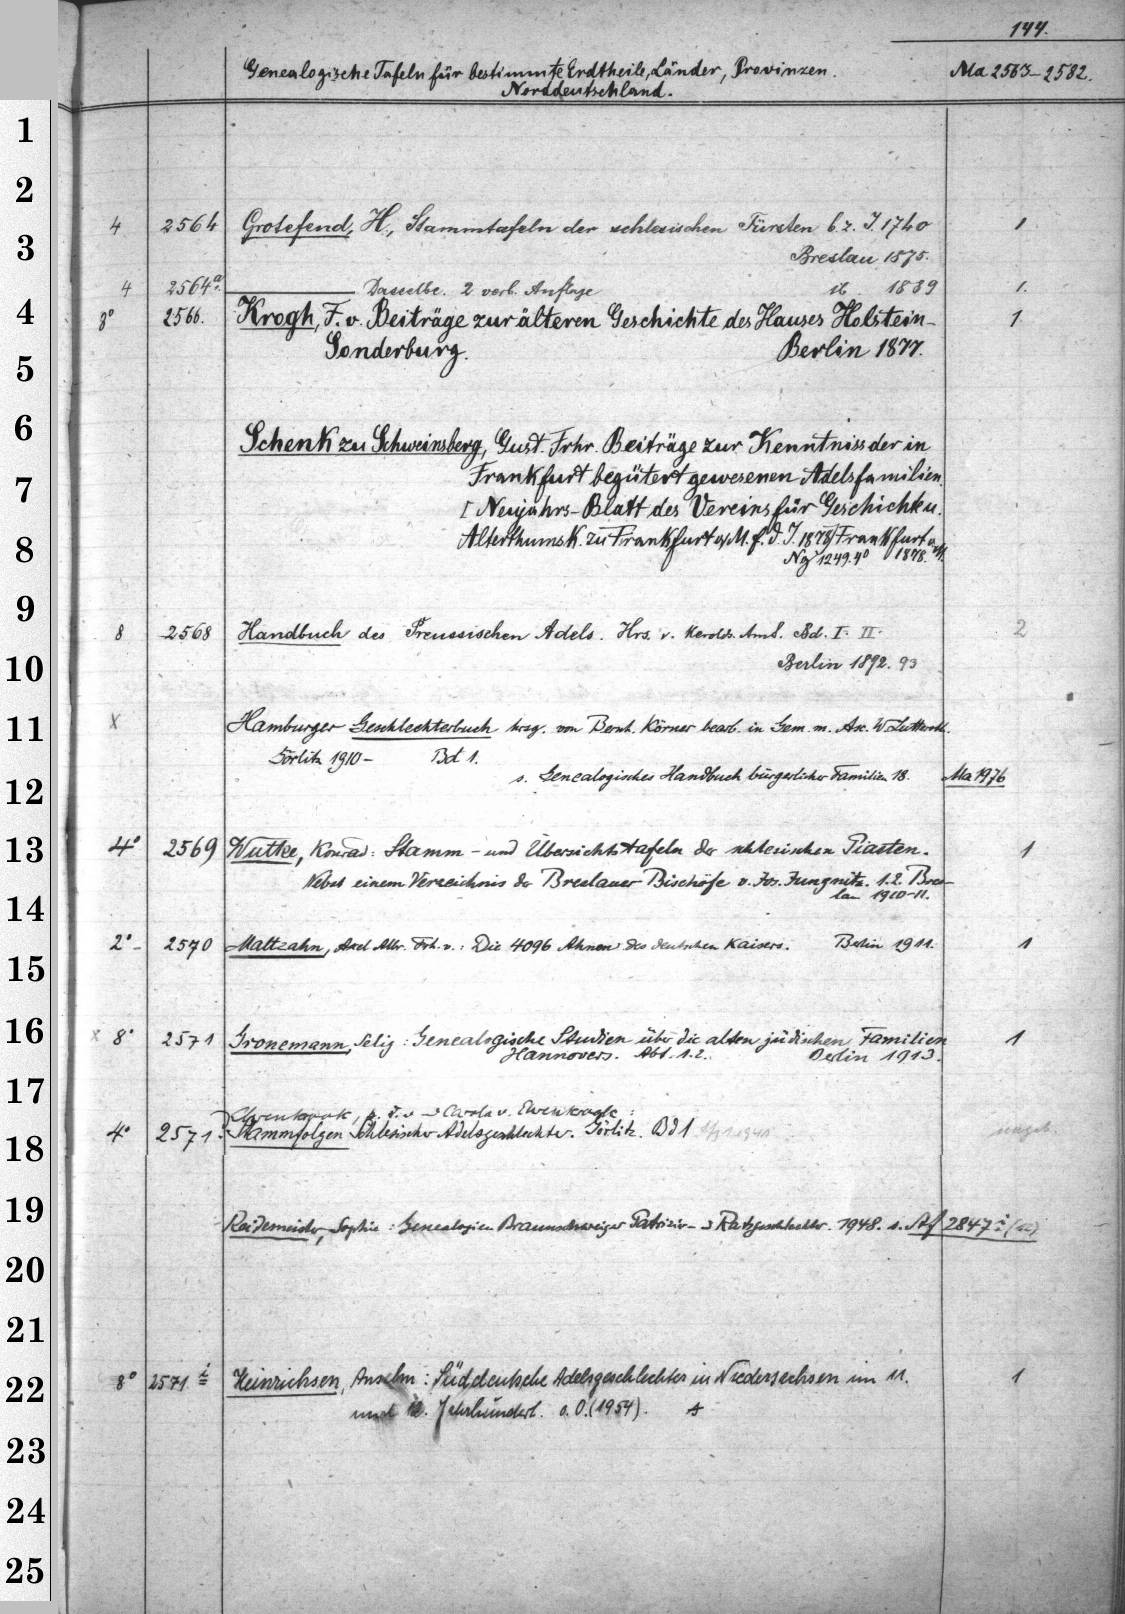 144.
Genealogische Tafeln für bestimmte Erdtheile, Länder, Provinzen. Ma 2563-2582.
Norddeutschland.
1
2
4 2564 Grotefend, H., Stammtafeln der schlesischen Fürsten b. z. J. 1740 1
3
Breslau 1875.
4 2564a. Dasselbe. 2 verb. Auflage ib 1889 1.
4
8° 2566. Krogh, F. v. Beiträge zur älteren Geschichte des Hauses Holstein- 1
Sonderburg. Berlin 1877.
5
6
Schenk zu Schweinsberg, Gust. Frhr. Beiträge zur Kenntniss der in
Frankfurt begütert gewesenen Adelsfamilien.
7
[Neujahrs-Blatt des Vereins für Geschichk u.
Alterthumsk. zu Frankfurt a/M. f. d. J. 1878] Frankfurt a/M.
8
1249. 4° 1878.
9
8 2568 Handbuch des Preussischen Adels. Hrs. v. Herolds-Amt. Bd. I. II. 2
10
Berlin 1892. 93
11
X Hamburger Geschlechterbuch hrsg. von Bernh. Körner bearb. in Gem. m. Asc. W. Lutteroth.
Görlitz 1910- Bd 1.
s. Genealogisches Handbuch bürgerlicher Familien 18. Ma 1976
12
13
4° 2569 Wutke, Konrad: Stamm- und Übersichtstafeln der schlesischen Piasten. 1
Nebst einem Verzeichnis der Breslauer Bischöfe v. Jos. Jungnitz. 1.2. Bres-
lau 1910-11.
14
2° - 2570 Maltzahn, Axel Albr. Frh. v.: Die 4096 Ahnen des deutschen Kaisers. Berlin 1911. 1
15
16
x 8° 2571 Gronemann, Selig: Genealogische Studien über die alten jüdischen Familien 1
Hannovers. Abt. 1.2. Berlin 1913.
17
Carola v.
4° 2571 Stammfolgen Schlesischer Adelsgeschlechter. Görlitz. Bd 1
18
19
Reidemeister, Sophie: Genealogien Braunschweiger Patrizier- u Ratsgeschlechter. 1948. s. Af 2847
20
21
8° 2571 i Heinrichsen, Anselm: Süddeutsche Adelsgeschlechter in Niedersachsen im 11. 1
22
und 12. Jahrhundert. o. O. (1954).
23
24
25